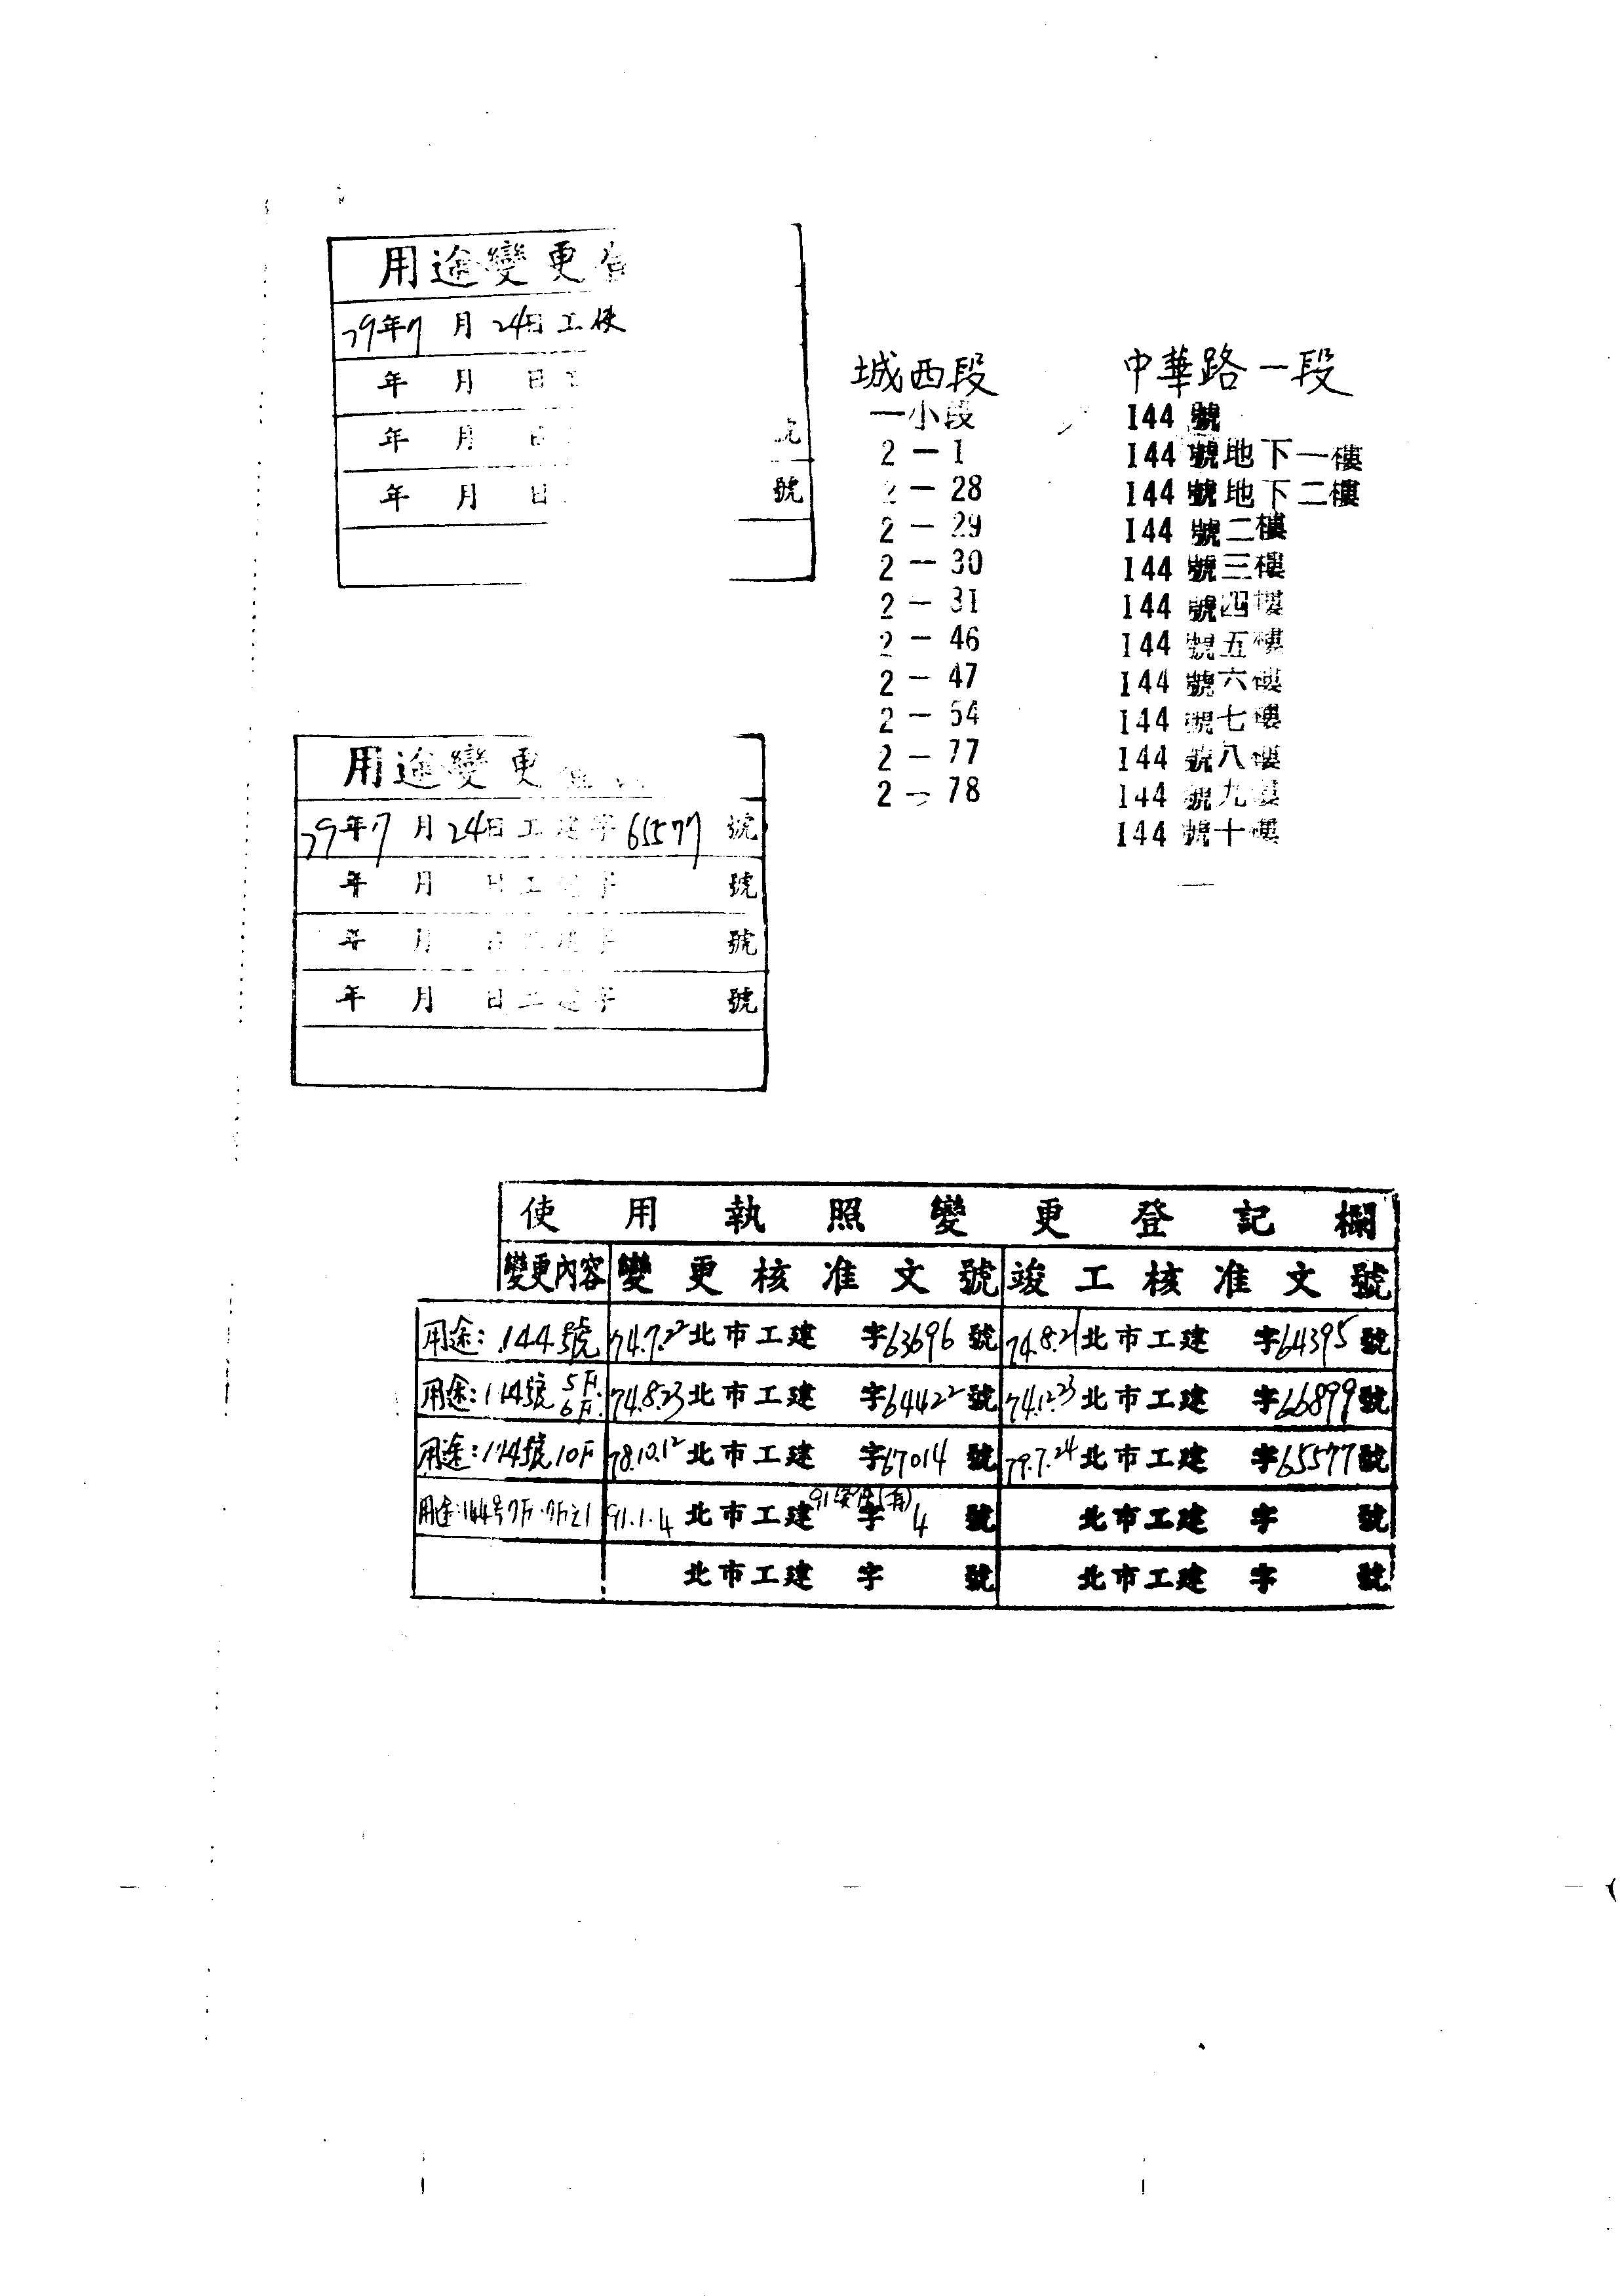 用途變更
79年7月24日工使
年 月 日工
年 月 日
號
年 月 日
號
城西段
一小段
2-1
2-28
2-29
2-30
2-31
2-46
2-47
2-54
2-77
2-78
中華路一段
144號
144號地下一樓
144號地下二樓
144號二樓
144號三樓
144號四樓
144號五樓
144號六樓
144號七樓
144號八樓
144號九樓
144號十樓
用途變更
79年7月24日工建字65577號
年 月 日工建字 號
年 月 日工建字 號
年 月 日工建字 號
使用執照變更登記欄
變更內容 變更核准文號 竣工核准文號
用途:144號 74.7.22北市工建 字63696號 74.8.21北市工建 字64395號
用途:144號5F.6F. 74.8.23北市工建 字64422號 74.12.23北市工建 字66899號
用途:144號10F 78.10.12北市工建 字67014號 79.7.24北市工建 字65577號
用途:144号7F.7F之1 91.1.4北市工建 字4號 北市工建 字 號
北市工建 字 號 北市工建 字 號